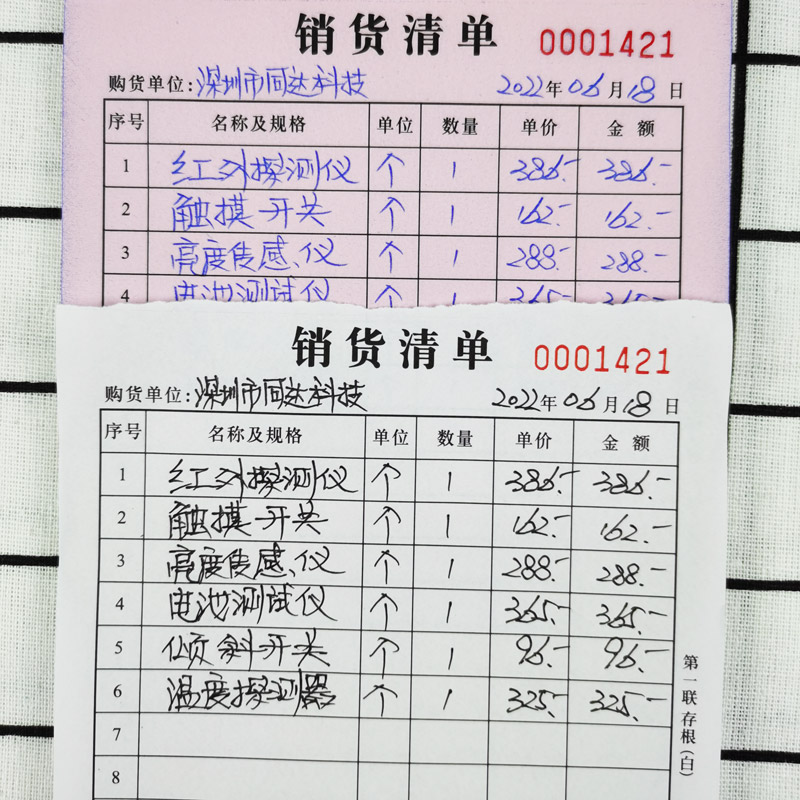 销货清单 0001421
购货单位:深圳市同达科技 2022年06月18日
序号 名称及规格 单位 数量 单价 金额
1 红外探测仪 个 1 386.- 386.-
2 触摸开关 个 1 162.- 162.-
3 亮度传感仪 个 1 288.- 288.-
4 电池测试仪 个 1 365.- 365.-
销货清单 0001421
购货单位:深圳市同达科技 2022年06月18日
序号 名称及规格 单位 数量 单价 金额
1 红外探测仪 个 1 386.- 386.-
2 触摸开关 个 1 162.- 162.-
3 亮度传感仪 个 1 288.- 288.-
4 电池测试仪 个 1 365.- 365.-
5 倾斜开关 个 1 96.- 96.-
6 温度探测器 个 1 325.- 325.-
7
8
第一联存根(白)